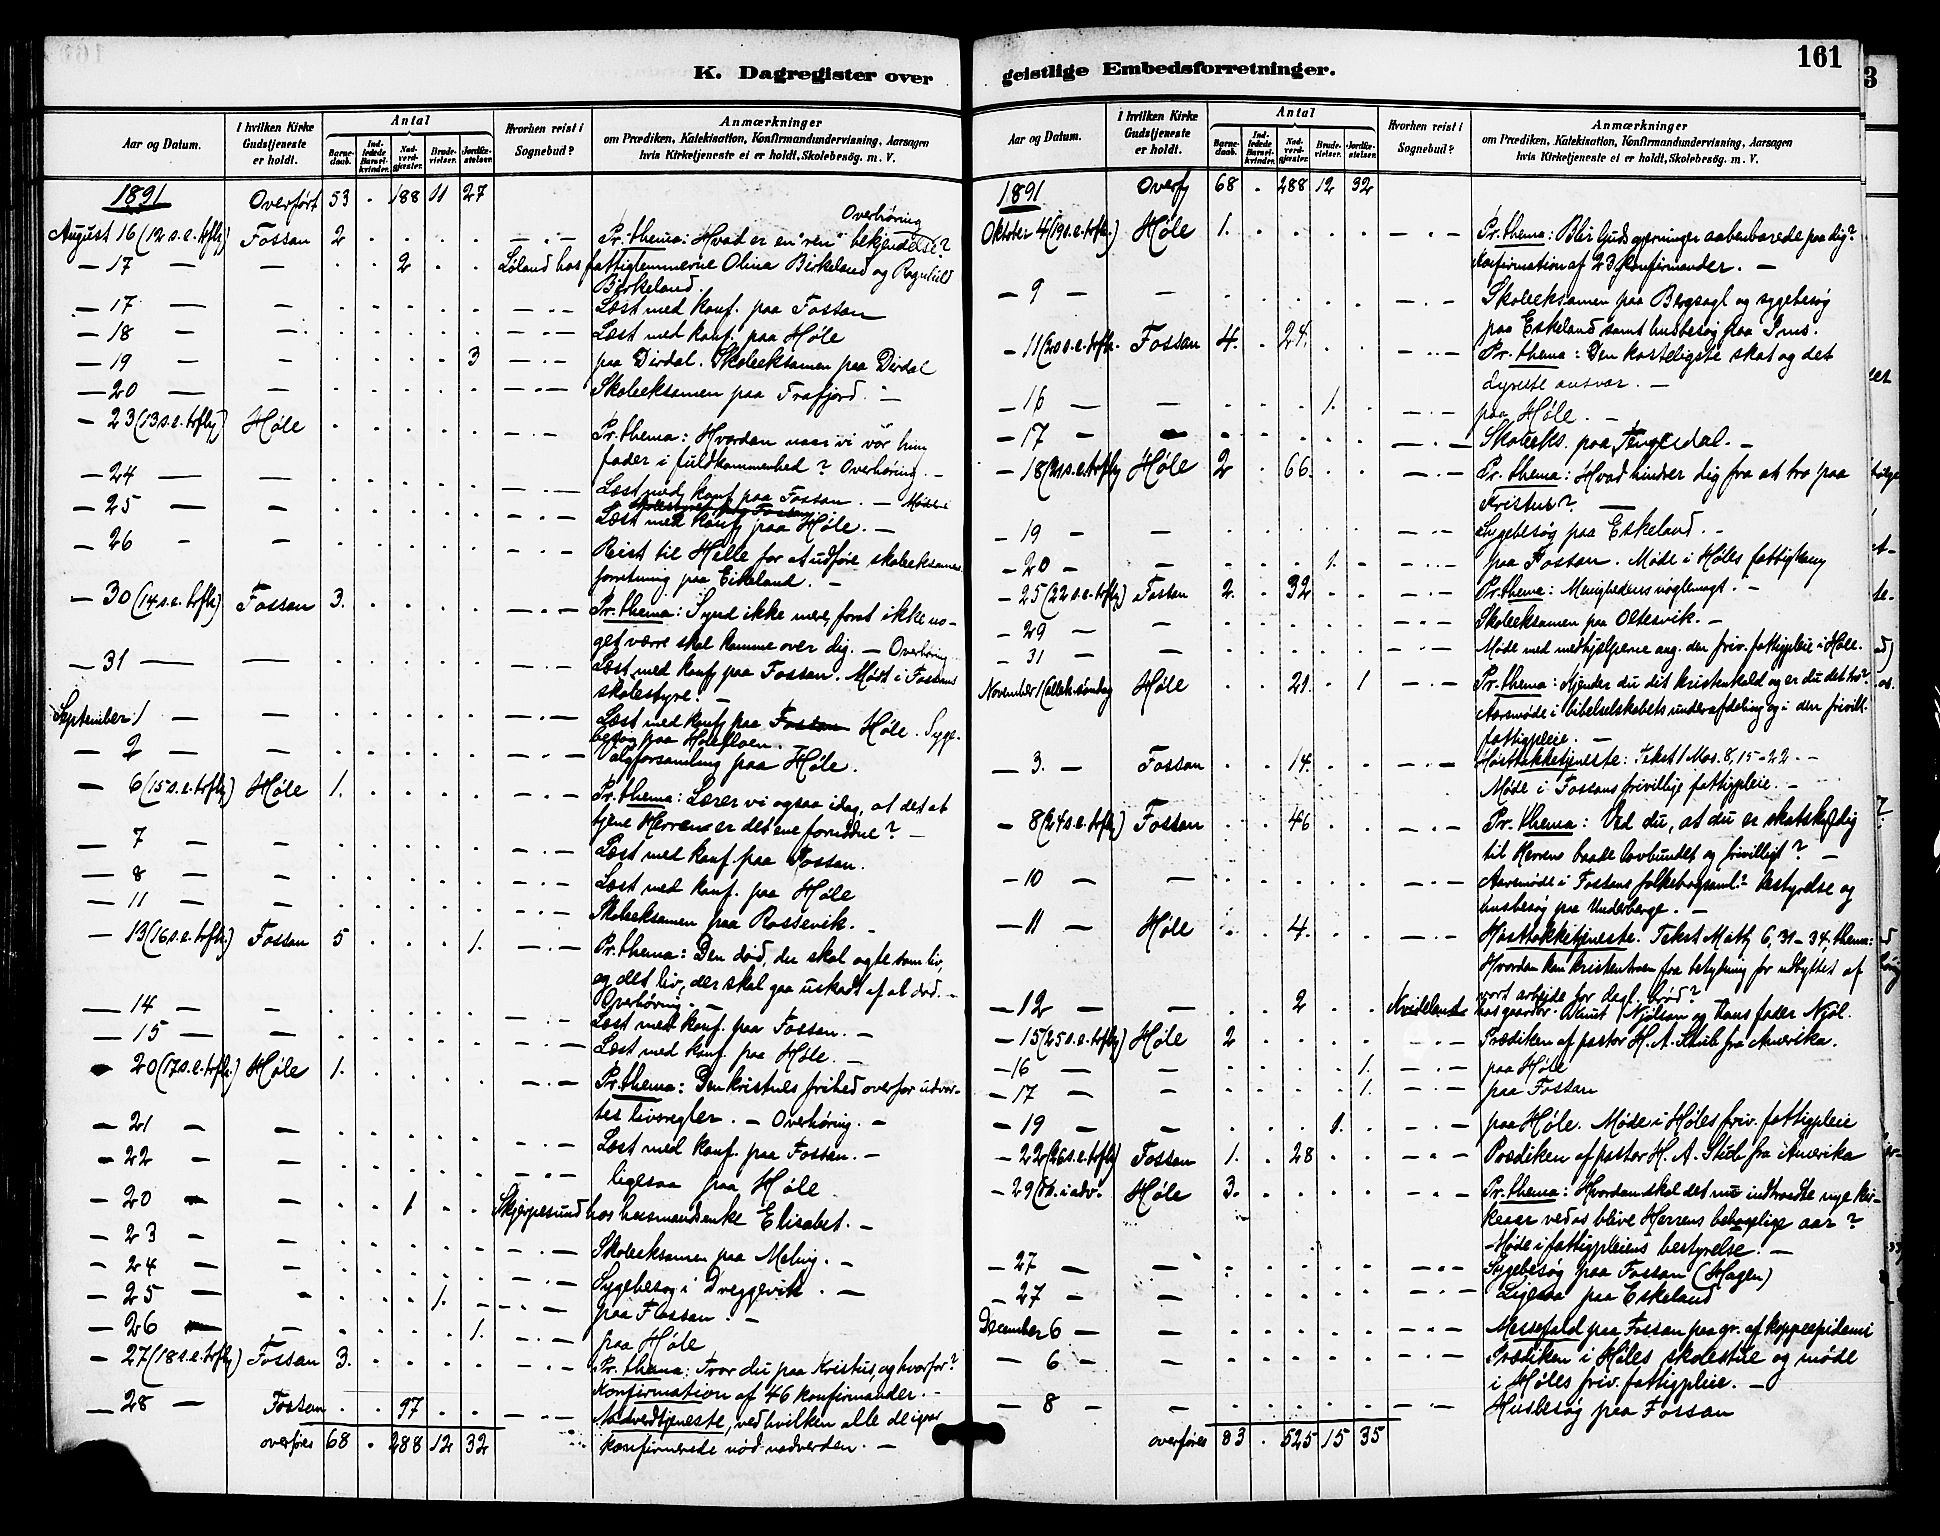 K. Dagregister over
Aar og Datum.
I hvilken Kirke Gudstjeneste er holdt.
Antal
Barnedaab.
Indledede Barselkvinder.
Nadverdgjester.
Brudevielser.
Jordfæstelser.
Hvorhen reist i Sognebud?
Anmærkninger
om Prædiken, Katekisation, Konfirmandundervisning, Aarsagen
hvis Kirketjeneste ei er holdt, Skolebesög. m. V.
1891 Overført 53 . 188 11 27
Overhøring
August 16 (12 s. e. trflg) Fossan 2 . . . . — . — Pr. thema: Hvad er en "ren" bekjendelse?
— 17 — — . . 2 . . Løland hos fattiglemmerne Olina Birkeland og Ragnhild
Birkeland.
— 17 — — . . . . . — . — Læst med konf. paa Fossan
— 18 — — . . . . . — . — Læst med konf. paa Høle
— 19 — — . . . . 3 — . — paa Dirdal. Skoleeksamen paa Dirdal
— 20 — — . . . . . — . — Skoleeksamen paa Frafjord. —
— 23 (13 s. e. trflg) Høle . . . . . — . — Pr. thema: Hvordan naar vi vor himm
fader i fuldkommenhed? Overhøring. —
— 24 — — . . . . . — . — Læst med konf paa Fossan. — Møde i
skolestyret paa Fossan
— 25 — — . . . . . — . — Læst med konf paa Høle. —
— 26 — — . . . . . — . — Reist til Helle for at udføre skoleeksamens
forretning paa Eikeland. —
— 30 (14 s. e. trflg) Fossan 3. . . . . — . — Pr. thema: Synd ikke mere, forat ikke no-
get værre skal komme over dig. — Overhøring
— 31 — — . . . . . — . — Læst med konf paa Fossan. Møde i Fossans
skolestyre. —
September 1 — — . . . . . — . — Læst med konf paa Fossan Høle. Syge-
besøg paa Holefloen.
— 2 — — . . . . . — . — Valgforsamling paa Høle.
— 6 (15 s. e. trflg) Høle 1. . . . . — . — Pr. thema: Lærer vi ogsaa idag, at det at
tjene Herren er det ene fornødne? —
— 7 — — . . . . . — . — Læst med konf. paa Fossan.
— 8 — — . . . . . — . — Læst med konf. paa Høle
— 11 — — . . . . . — . — Skoleeksamen paa Rossevik. —
— 13 (16 s. e. trflg.) Fossan 5 . . . 1. — . — Pr. thema: Den død, der skal agtes som liv,
og det liv, der skal gaa uskadt af at død. —
Overhøring. —
— 14 — — . . . . . — . — Læst med konf. paa Fossan. —
— 15 — — . . . . . — . — Læst med konf. paa Høle. —
— 20 (17 s. e. trflg.) Høle 1. . . . . — . — Pr. thema: Den kristnes frihed overfor udvor-
tes livsregler. — Overhøring. —
— 21 — — . . . . . — . — Læst med konf. paa Fossan. —
— 22 — — . . . . . — . — ligesaa paa Høle.
— 20 — — . . 1 . . Skjørpesund hos husmandsenke Elisabet. —
— 23 — — . . . . . — . — Skoleeksamen paa Meling. —
— 24 — — . . . . . — . — Sygebesøg i Dreggevik. —
— 25 — — . . . 1. — — . — paa Fossan. —
— 26 — — . . . . 1. — . — paa Høle
— 27 (18 s. e. trflg) Fossan 3. . . . . — . — Pr. thema: Tror du paa Kristus, og hvorfor?
Konfirmation af 46 konfirmander. —
— 28 — Fossan . . 97 . . — . — Nadverdtjeneste, ved hvilken alle de igaar
overføres 68 . 288 12 32 konfirmerede nød nadverden. —
geistlige Embedsforretninger.
161
Aar og Datum.
I hvilken Kirke Gudstjeneste er holdt.
Antal
Barnedaab.
Indledede Barselkvinder.
Nadverdgjester.
Brudevielser.
Jordfæstelser.
Hvorhen reist i Sognebud?
Anmærkninger
om Prædiken, Katekisation, Konfirmandundervisning, Aarsagen
hvis Kirketjeneste ei er holdt, Skolebesög. m. V.
1891 Overf 68 . 288 12 32
Oktober 4 (19 s. e. trflg.) Høle 1. . . . . — . — Pr. thema: Blir Guds gjerninger aabenbarede paa dig?
Konfirmation af 23 konfirmander. —
— 9 — — . . . . . — . — Skoleeksamen paa Bergsagl og sygebesøg
paa Eskeland samt husbesøg paa Ims.
— 11 (20 s. e. trflg. Fossan 4. . 24. . . — . — Pr. thema: Den kosteligste skat og det
dyreste ansvar. —
— 16 — — . . . 1. . — . — paa Høle. —
— 17 — — . . . . . — . — Skoleeks. paa Tengesdal. —
— 18 (21 s. e. trflg Høle 2 . 66. . . — . — Pr. thema: Hvad hindrer dig fra at tro paa
Kristus? —
— 19 — — . . . . . — . — Sygebesøg paa Eskeland. —
— 20 — — . . . 1. . — . — paa Fossan. Møde i Høles fattigkom
— 25 (22 s. e. trflg) Fossan 2. . 32 . . — . — Pr. thema: Menighedens nøglemagt. —
— 29 — — . . . . . — . — Skoleeksamen paa Oltesvik. —
— 31 — — . . . . . — . — Møde med medhjælperne ang. den friv. fattigpleie i Høle.
November 1 (alleh. søndag Høle . . 21. . 1 — . — Pr. thema: Kjender du dit kristenkald og er du det tro?
Aarsmøde i bibelselskabets underafdeling og i den frivill.
fattigpleie. —
— 3. — Fossan . . 14. . . — . — Høsttakketjeneste: Tekst 1 Mos. 8, 15-22. —
Møde i Fossans frivillige fattigpleie. —
— 8 (24 s. e. trflg) Fossan . . 46 . . — . — Pr. thema: Ved du, at du er skatskyldig
til Herren baade lovbundet og frivilligt? —
— 10 — — . . . . . — . — Aarsmøde i Fossans folkebogsaml.s bestyrelse og
husbesøg paa Underberge. —
— 11 — Høle . . 4. . . — . — Høsttakketjeneste. Tekst Matt 6, 31-34. thema:
Hvordan kan kristentroen faa betydning for udbyttet af
vort arbejde for dagl. brød?
— 12 — — . . 2 . . Kvideland hos gaardbr. Knut Njølsen og hans fader Njøl.
— 15 (25 s. e. trflg) Høle 2 . . . . — . — Prædiken af pastor H. A. Stub fra Amerika.
— 16 — — . . . . 1. — . — paa Høle
— 17 — — . . . . 1. — . — paa Fossan
— 19 — — . . . 1. . — . — paa Høle. Møde i Høles friv. fattigpleie
— 22 (26 s. e. trflg) Fossan 1. . 28 . . — . — Prædiken af pastor H. A. Stub fra Amerika
— 29 (1 s. i adv. Høle 3. . . . . — . — Pr. thema: Hvordan skal det nu indtraadte nye kir-
keaar ved os blive Herrens behagelige aar?
Møde i fattigpleiens bestyrelse. —
— 27 — — . . . . . — . — Sygebesøg paa Fossan (Hagen)
— 27 — — . . . . . — . — Ligesaa paa Eskeland
December 6 — — . . . . . — . — Messefald paa Fossan paa gr. af koppeepidemi
— 6 — — . . . . . — . — Prædiken i Høles skolestue og møde
i Høles friv. fattigpleie. —
— 8 — — . . . . . — . — Husbesøg paa Fossan
overføres 83 . 525 15 35